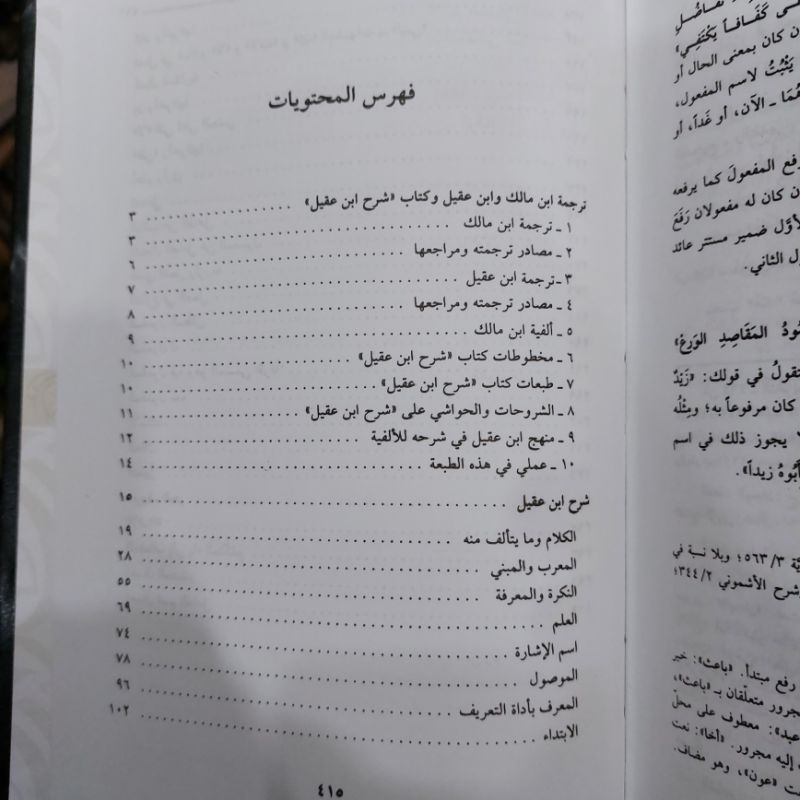 فهرس المحتويات
ترجمة ابن مالك وابن عقيل وكتاب «شرح ابن عقيل» .................. ٣
١ ـ ترجمة ابن مالك .................. ٣
٢ ـ مصادر ترجمته ومراجعها .................. ٦
٣ ـ ترجمة ابن عقيل .................. ٧
٤ ـ مصادر ترجمته ومراجعها .................. ٨
٥ ـ ألفية ابن مالك .................. ٩
٦ ـ مخطوطات كتاب «شرح ابن عقيل» .................. ١٠
٧ ـ طبعات كتاب «شرح ابن عقيل» .................. ١٠
٨ ـ الشروحات والحواشي على «شرح ابن عقيل» .................. ١١
٩ ـ منهج ابن عقيل في شرحه للألفية .................. ١٢
١٠ ـ عملي في هذه الطبعة .................. ١٤
شرح ابن عقيل .................. ١٥
الكلام وما يتألف منه .................. ١٩
المعرب والمبني .................. ٢٨
النكرة والمعرفة .................. ٥٥
العلم .................. ٦٩
اسم الإشارة .................. ٧٤
الموصول .................. ٧٨
المعرف بأداة التعريف .................. ٩٦
الابتداء .................. ١٠٢
٤١٥
كَفَافاً يَكْتَفِي»
ن كان بمعنى الحال أو
يَثْبُتُ لاسم المفعول،
هُمَا ـ الآن، أو غَداً، أو
رفع المفعولَ كما يرفعه
ن كان له مفعولان رَفَعَ
لأوَّل ضمير مستتر عائد
ل الثاني.
المَقَاصِدِ الوَرِعْ»
تقولُ في قولك: «زَيْدٌ
كان مرفوعاً به؛ ومِثْلُه
يجوز ذلك في اسم
أَبُوهُ زيداً».
٥٦٣/٣؛ وبلا نسبة في
شرح الأشموني ٣٤٤/٢؛
رفع مبتدأ. «باعث»: خبر
مجرور متعلّقان بـ «باعث»،
عبد»: معطوف على محلّ
إليه مجرور. «أخا»: نعت
«عون»، وهو مضاف.